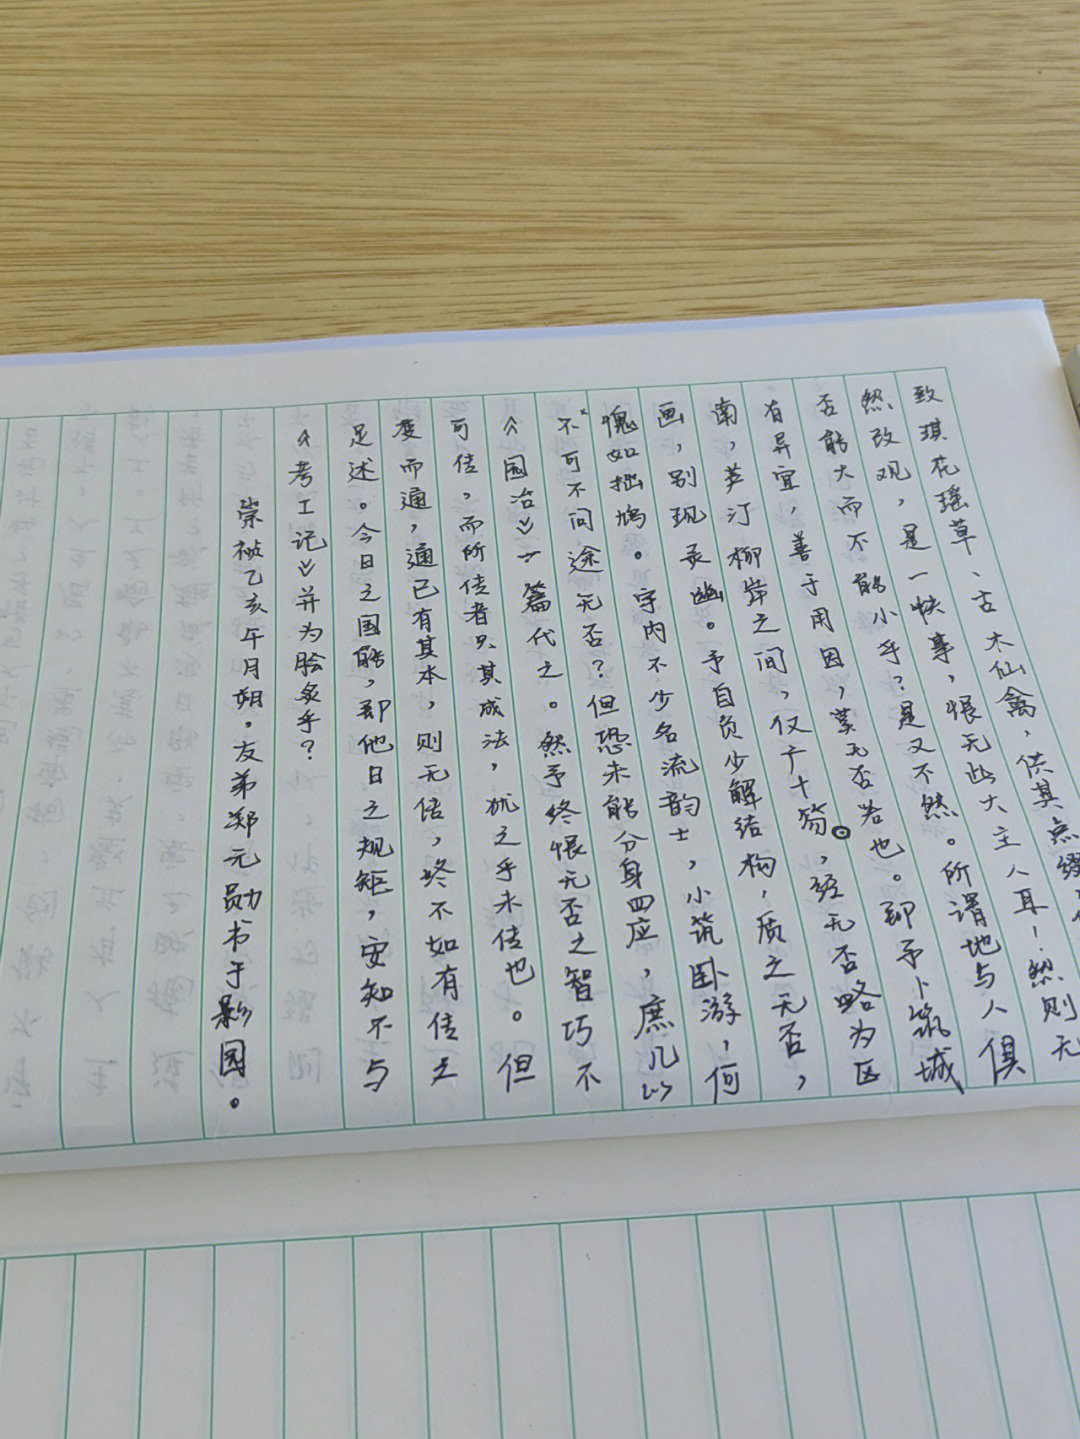 致琪花瑶草、古木仙禽，供其点缀
然改观，是一快事，恨无此大主人耳！然则无
否能大而不能小乎？是又不然。所谓地与人俱
有异宜，善于用因，莫无否若也。即予卜筑城
南，芦汀柳岸之间，仅广十笏。，经无否略为区
画，别现灵幽。予自负少解结构，质之无否，
愧如拙鸠。宇内不少名流韵士，小筑卧游，何
不可不问途无否？但恐未能分身四应，庶几以
《园冶》一篇代之。然予终恨无否之智巧不
可传，而所传者只其成法，犹之乎未传也。但
变而通，通已有其本，则无传，终不如有传之
足述。今日之国能，即他日之规矩，安知不与
《考工记》并为脍炙乎？
崇祯乙亥午月朔。友弟郑元勋书于影园。